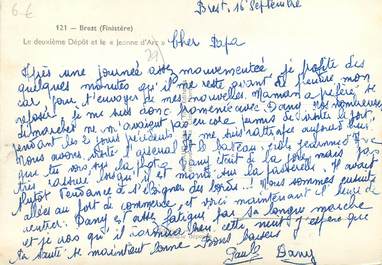 6€
Brest, 16 Septembre
121 - Brest (Finistère)
Le deuxième Dépôt et le « Jeanne d'Arc »
29
Cher Papa
Après une journée assez mouvementée, je profite des
quelques minutes qu'il me reste avant de mon
car pour t'envoyer de mes nouvelles. Maman a préféré se
reposer je me suis donc promenée avec Dany. Les nombreuses
démarches ne m'avaient pas encore permis de visiter le port,
pendant les 2 jours précédents je me suis rattrapée aujourd'hui.
Nous avons visité l'arsenal et le bateau "école Jeanne d'Arc"
que tu vois sur la photo. Dany était de la fête mais pas
très rassuré lorsqu'il est monté sur la passerelle. Il avait
plutôt tendance à s'éloigner des bords!! Nous sommes ensuite
allées au port de commerce, et voici maintenant l'heure de
rentrer. Dany est assez fatigué par sa longue marche
et je crois qu'il dormira bien cette nuit. J'espère que
ta santé se maintient bonne. Bons baisers
Paule Dany